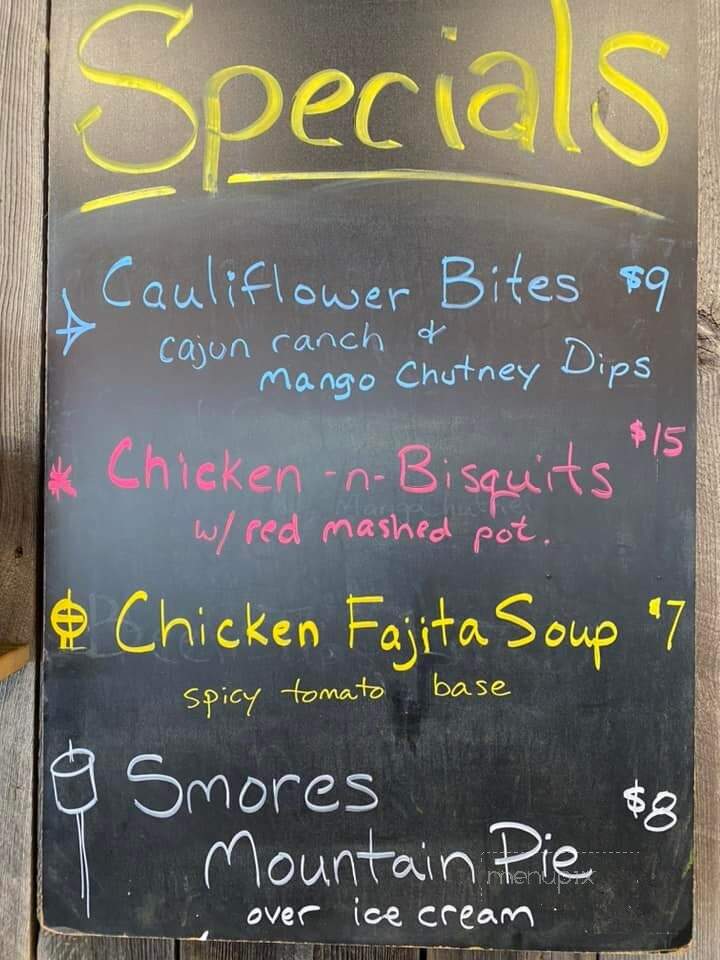 Specials
Cauliflower Bites $9
cajun ranch &
mango Chutney Dips
$15
Chicken -n- Bisquits
w/ red mashed pot.
Chicken Fajita Soup $7
spicy tomato base
Smores
$8
Mountain Pie
menupix
over ice cream